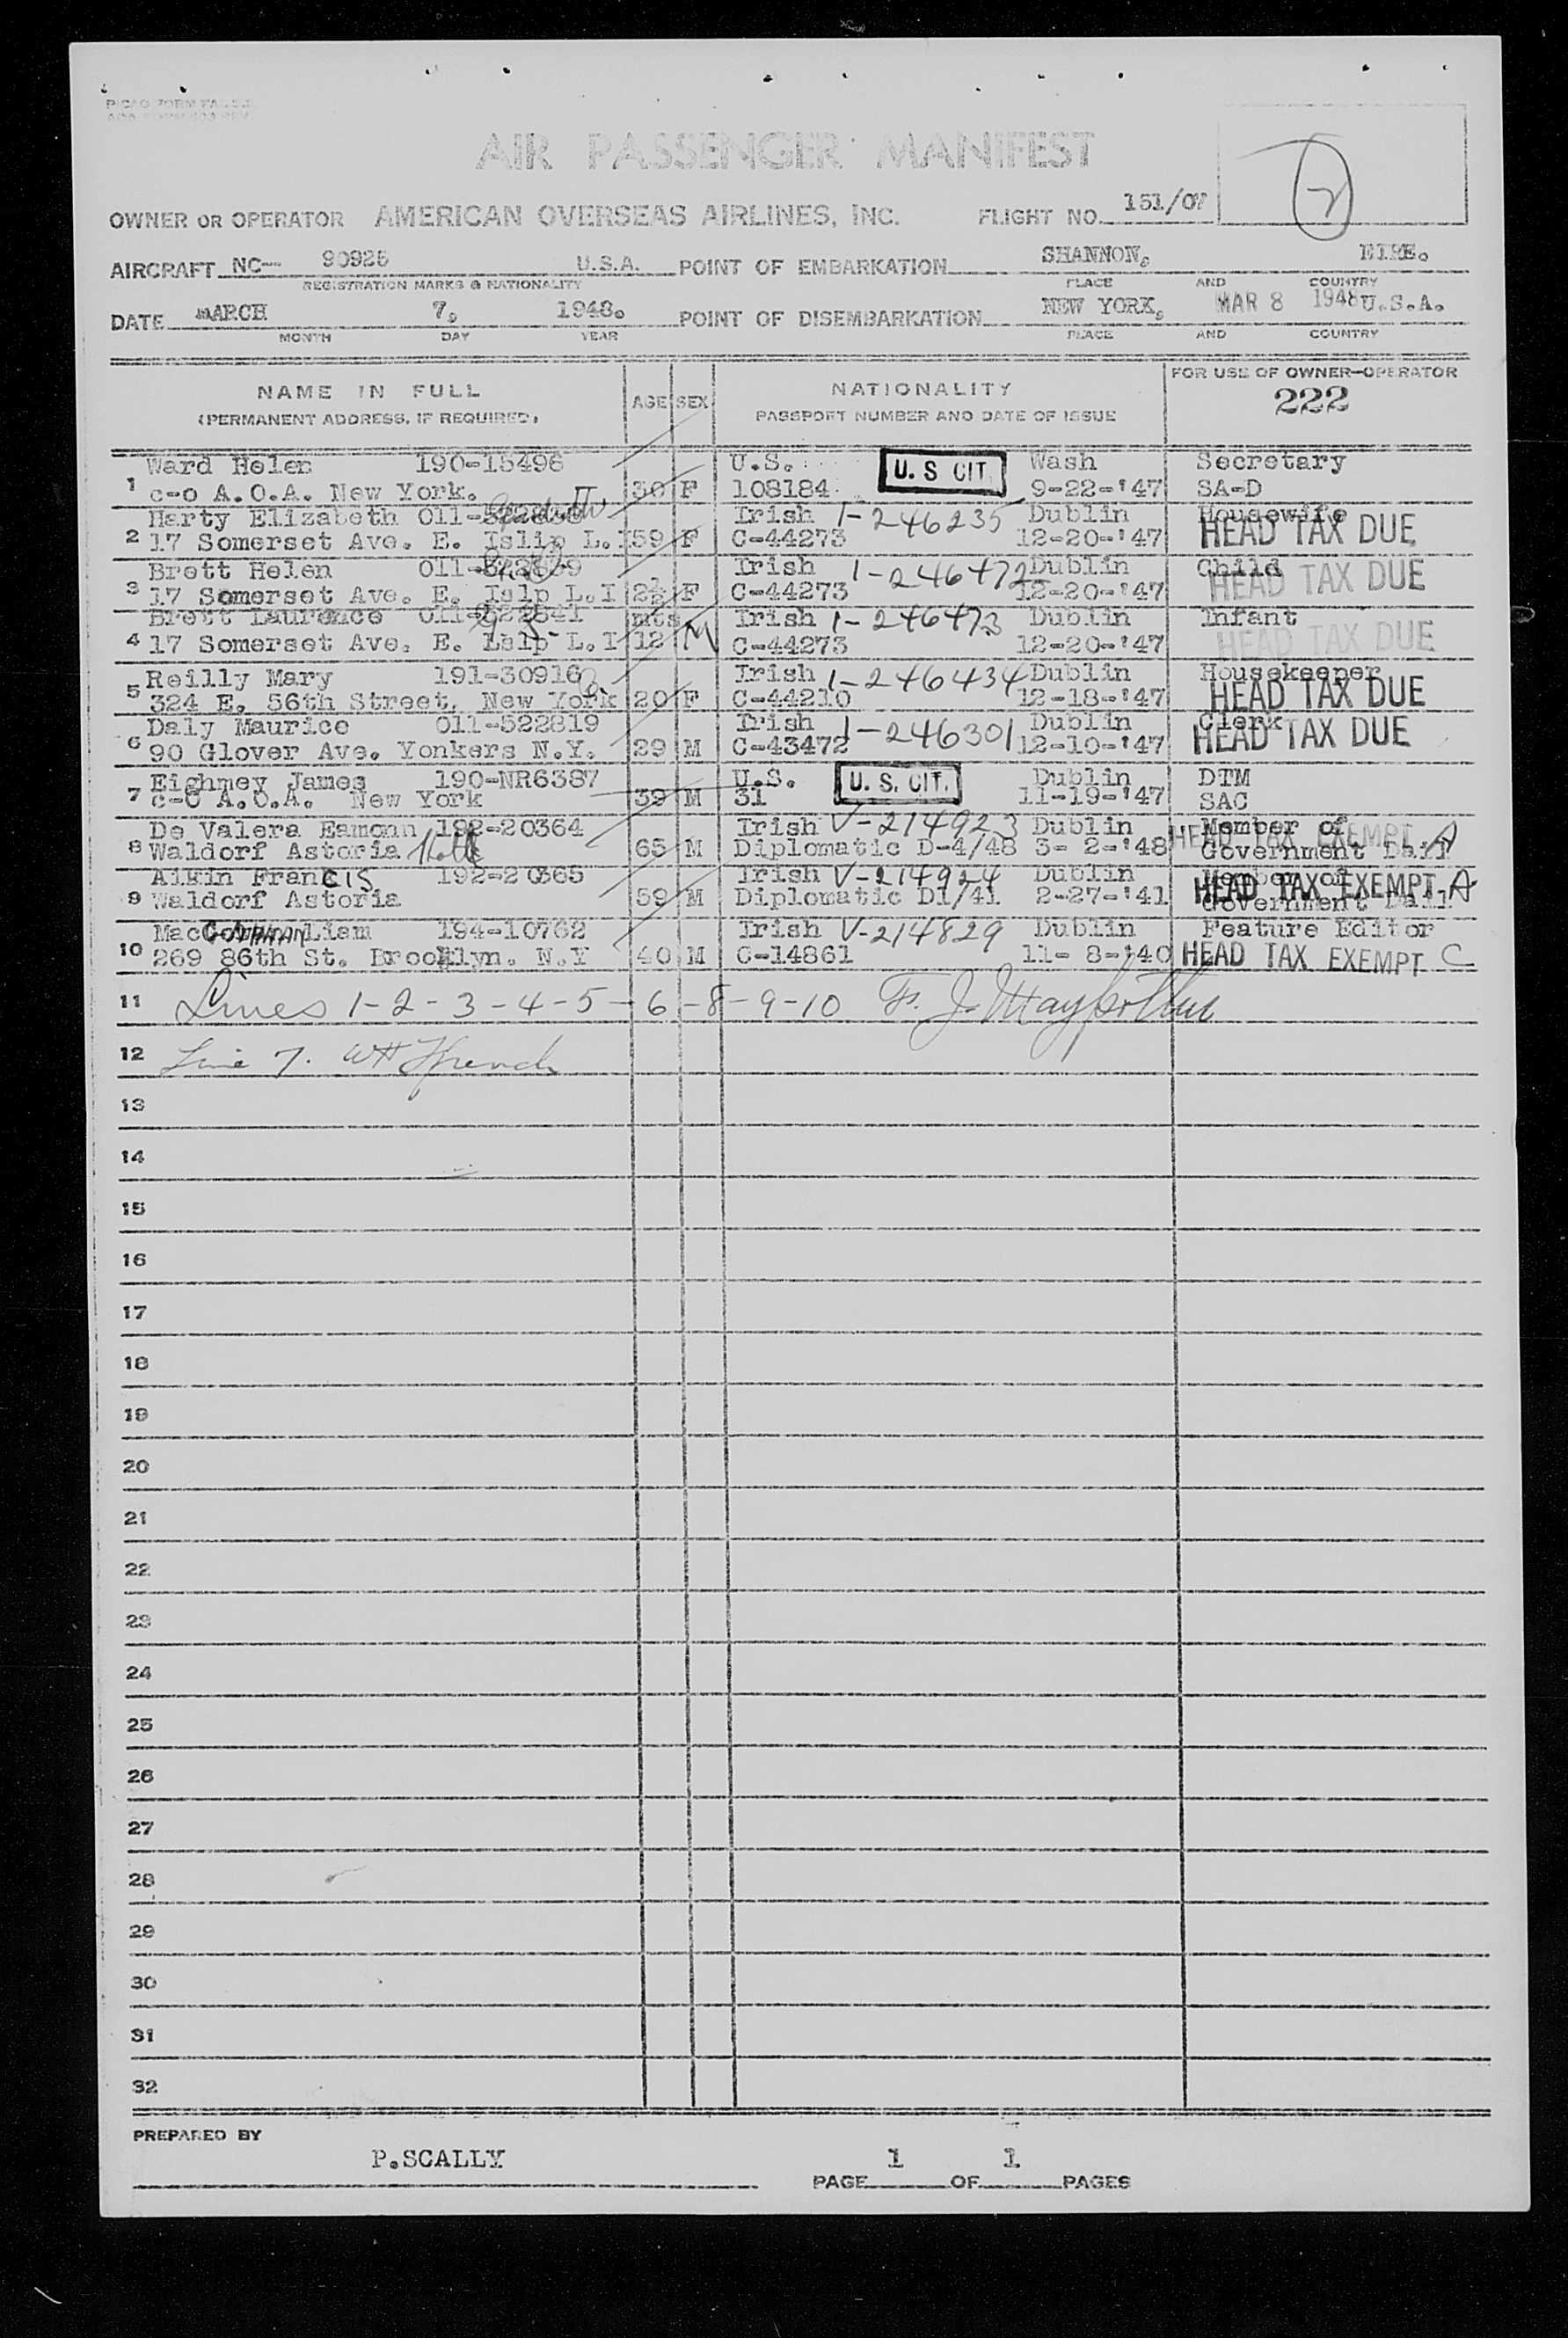 AIR PASSENGER MANIFEST
OWNER OR OPERATOR AMERICAN OVERSEAS AIRLINES, INC. FLIGHT NO. 151/07 2
AIRCRAFT NC— 90925 U.S.A. POINT OF EMBARKATION SHANNON, EIRE.
REGISTRATION MARKS & NATIONALITY PLACE AND COUNTRY
DATE MARCH 7, 1948. POINT OF DISEMBARKATION NEW YORK, MAR 8 1948 U.S.A.
MONTH DAY YEAR PLACE AND COUNTRY
NAME IN FULL AGE SEX NATIONALITY FOR USE OF OWNER—OPERATOR
(PERMANENT ADDRESS, IF REQUIRED) PASSPORT NUMBER AND DATE OF ISSUE 222
1 Ward Helen 190-15496 U.S. U. S CIT Wash Secretary
c-o A.O.A. New York. 30 F 108184 9-22-'47 SA-D
2 Harty Elizabeth 011- Irish 1-246235 Dublin Housewife
17 Somerset Ave. E. Islip L.I 59 F C-44273 12-20-'47 HEAD TAX DUE
3 Brett Helen 011- Irish 1-246472 Dublin Child
17 Somerset Ave. E. Islp L.I 2½ F C-44273 12-20-'47 HEAD TAX DUE
4 Brett Laurence 011-522841 mts Irish 1-246473 Dublin Infant
17 Somerset Ave. E. Islp L.I 12 M C-44273 12-20-'47 HEAD TAX DUE
5 Reilly Mary 191-30916 Irish 1-246434 Dublin Housekeeper
324 E. 56th Street. New York 20 F C-44210 12-18-'47 HEAD TAX DUE
6 Daly Maurice 011-522819 Irish 1-246301 Dublin Clerk
90 Glover Ave. Yonkers N.Y. 29 M C-43472 12-10-'47 HEAD TAX DUE
7 Eighmey James 190-NR6387 U.S. U. S. CIT. Dublin DTM
c-o A.O.A. New York 39 M 31 11-19-'47 SAC
8 De Valera Eamonn 192-20364 Irish V-214923 Dublin Member of HEAD TAX EXEMPT A
Waldorf Astoria Hotel 65 M Diplomatic D-4/48 3- 2-'48 Government Dail
9 Aikin Francis 192-20365 Irish V-214924 Dublin Member of HEAD TAX EXEMPT A
Waldorf Astoria 59 M Diplomatic D1/41 2-27-'41 Government Dail
10 MacGorman Liam 194-10762 Irish V-214829 Dublin Feature Editor
269 86th St. Brooklyn. N.Y 40 M C-14861 11- 8-'40 HEAD TAX EXEMPT C
11 Lines 1-2-3-4-5-6-8-9-10 F. J.
12 Line 7. WH
13
14
15
16
17
18
19
20
21
22
23
24
25
26
27
28
29
30
31
32
PREPARED BY
P.SCALLY
PAGE 1 OF 1 PAGES